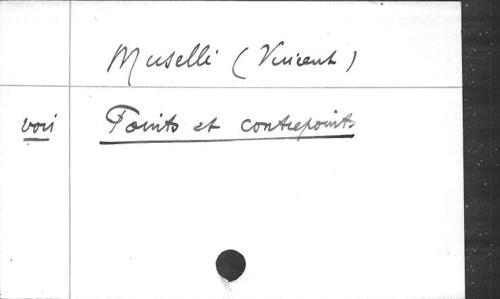 Muselli (Vincent)
voir Points et contrepoints